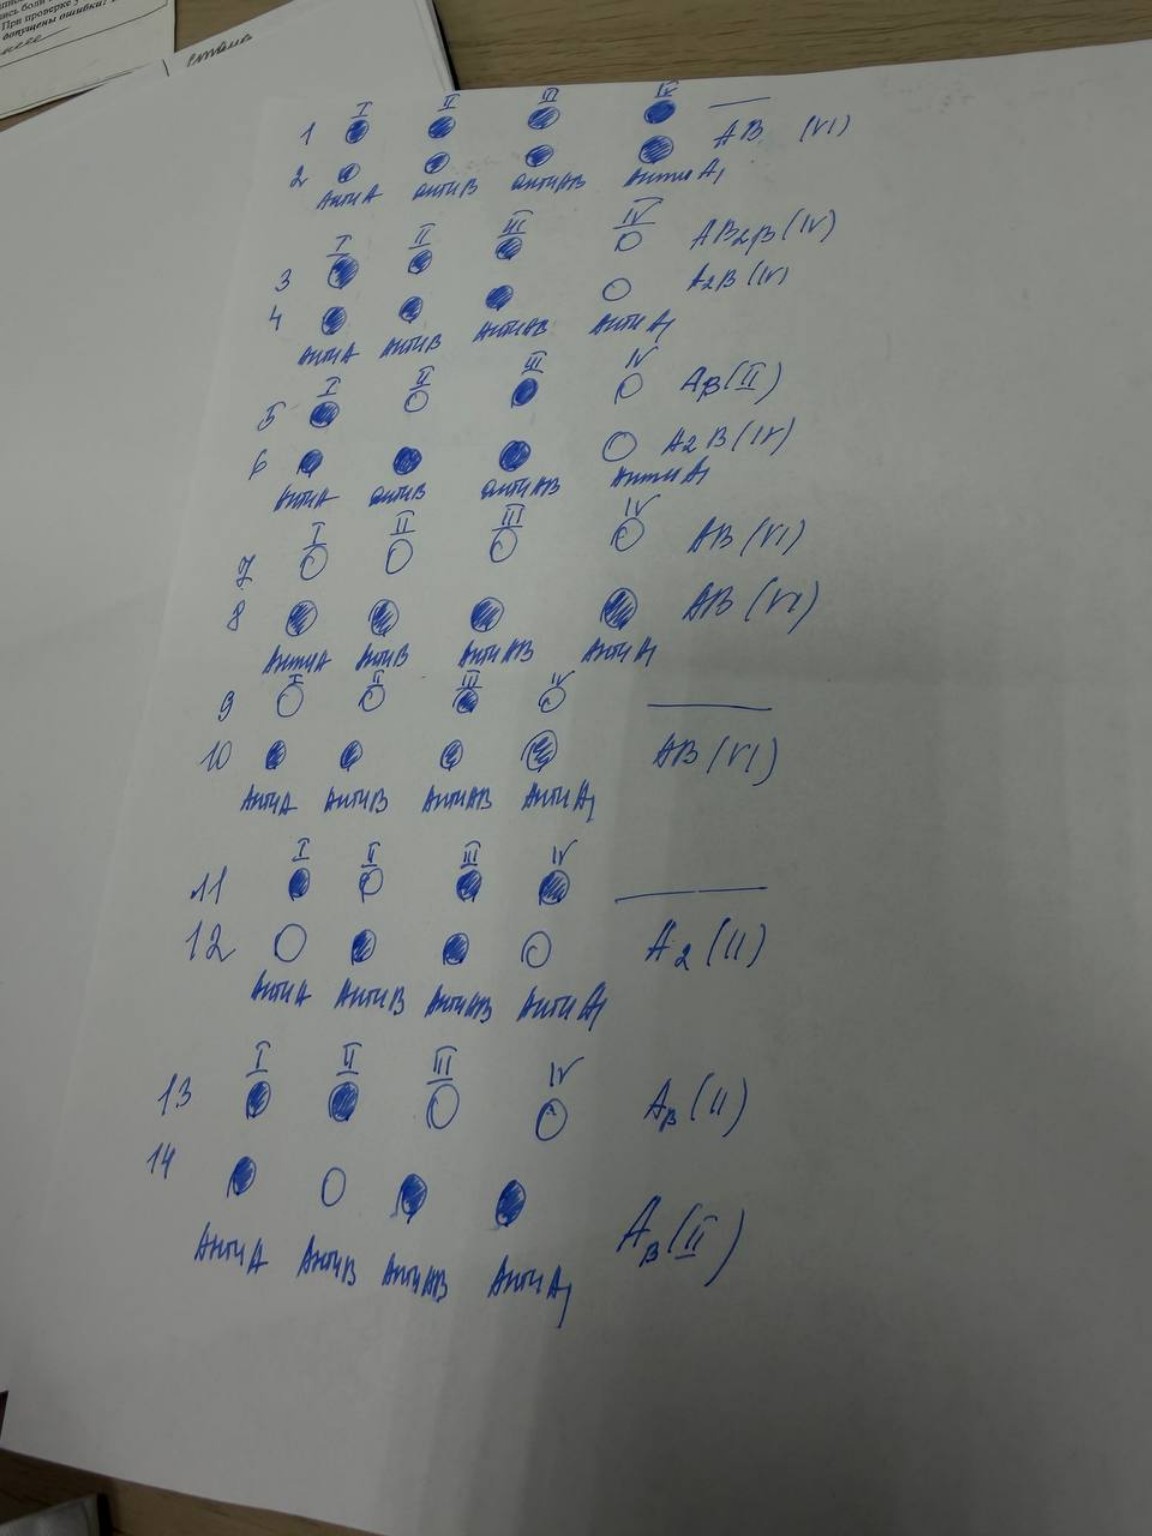 При проверке у
допущены ошибки?
I II III IV
1 AB (VI)
2
Анти А анти В анти АВ Анти А1
I II III IV
3 AB2β (IV)
4 A2B (IV)
Анти А Анти В Анти АВ Анти А1
I II III IV
5 Aβ (II)
6 A2B (IV)
Анти А анти В анти АВ Анти А1
I II III IV
7 AB (VI)
8 AB (VI)
Анти А Анти В Анти АВ Анти А1
I II III IV
9
10 AB (VI)
Анти А Анти В Анти АВ Анти А1
I II III IV
11
12 A2 (II)
Анти А Анти В Анти АВ Анти А1
I II III IV
13 Aβ (II)
14 Aβ (II)
Анти А Анти В Анти АВ Анти А1